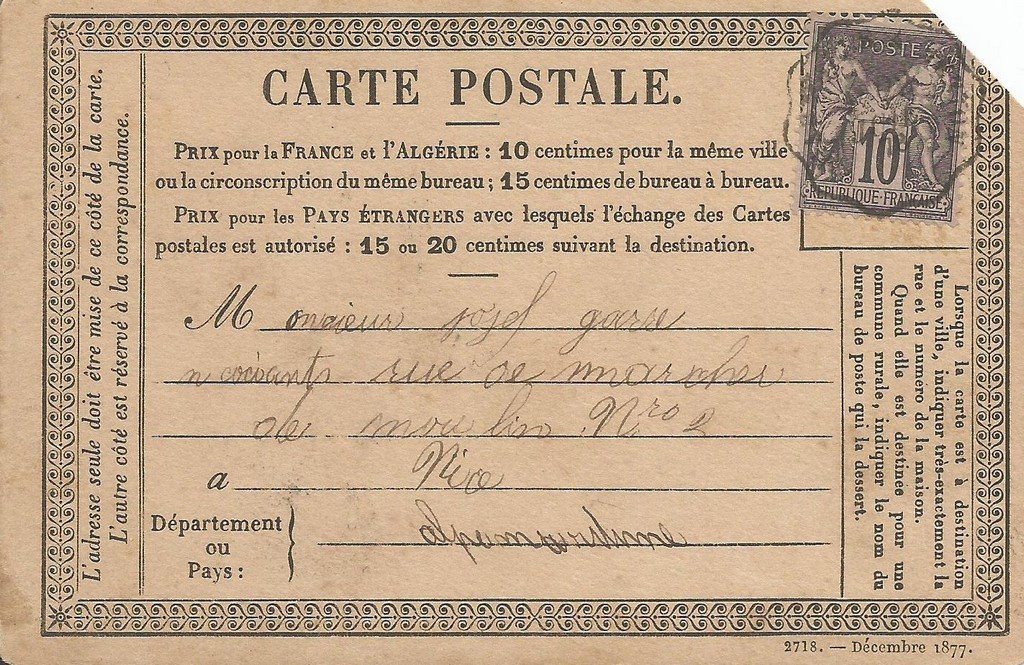 CARTE POSTALE.
POSTE
10
REPUBLIQUE FRANÇAISE
PRIX pour la FRANCE et l'ALGÉRIE : 10 centimes pour la même ville
ou la circonscription du même bureau ; 15 centimes de bureau à bureau.
PRIX pour les PAYS ÉTRANGERS avec lesquels l'échange des Cartes
postales est autorisé : 15 ou 20 centimes suivant la destination.
L'adresse seule doit être mise de ce côté de la carte.
L'autre côté est réservé à la correspondance.
Monsieur josef garre
rue de marcher
de moulin Nro 2
a Nice
Département
ou
Pays :
alpemaritime
Lorsque la carte est à destination
d'une ville, indiquer très-exactement la
rue et le numero de la maison.
Quand elle est destinée pour une
commune rurale, indiquer le nom du
bureau de poste qui la dessert.
2718. — Décembre 1877.